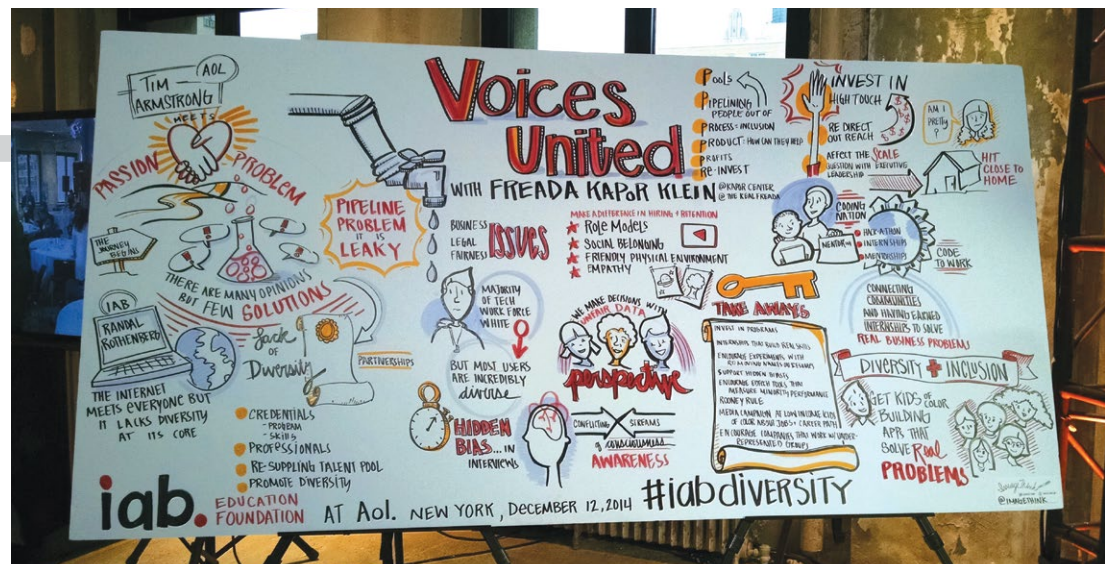 TIM
ARMSTRONG
AOL
MEETS
PASSION
PROBLEM
THE
JOURNEY
BEGINS
THERE ARE MANY OPINIONS
BUT FEW SOLUTIONS
PIPELINE
PROBLEM
IT IS
LEAKY
IAB
RANDAL
ROTHENBERG
THE INTERNET
MEETS EVERYONE BUT
IT LACKS DIVERSITY
AT ITS CORE
Lack
OF
Diversity
PARTNERSHIPS
CREDENTIALS
- PROGRAM
- SKILLS
PROFESSIONALS
RE-SUPPLING TALENT POOL
PROMOTE DIVERSITY
Voices
United
WITH FREADA KAPOR KLEIN
@KAPOR CENTER
@THE REALFREADA
BUSINESS
LEGAL
FAIRNESS
ISSUES
MAJORITY
OF TECH
WORK FORCE
WHITE
BUT MOST USERS
ARE INCREDIBLY
diverse
HIDDEN
BIAS... IN
INTERVIEWS
MAKE A DIFFERENCE IN HIRING + RETENTION
ROLE MODELS
SOCIAL BELONGING
FRIENDLY PHYSICAL ENVIRONMENT
EMPATHY
WE MAKE DECISIONS WITH
UNFAIR DATA
perspective
CONFLICTING STREAMS
of consciousness
AWARENESS
POOLS
PIPELINING
PEOPLE OUT OF
PROCESS = INCLUSION
PRODUCT: HOW CAN THEY HELP
PROFITS
RE-INVEST
INVEST IN
HIGH TOUCH
RE DIRECT
OUT REACH
AFFECT THE SCALE
QUESTION WITH EXECUTIVE
LEADERSHIP
$ $ $ $ $
AM I
PRETTY
?
HIT
CLOSE TO
HOME
CODING
NATION
MENTOR
HACKATHON
INTERNSHIPS
MENTORSHIPS
CODE
TO WORK
CONNECTING
COMMUNITIES
AND HAVING EARNED
INTERNSHIPS TO SOLVE
REAL BUSINESS PROBLEMS
TAKE AWAYS
INVEST IN PROGRAMS
INTERNSHIPS THAT BUILD REAL SKILLS
ENCOURAGE EXPERIMENTS WITH
NAMES IN RESUMES
SUPPORT HIDDEN BIASES
ENCOURAGE EDTECH TOOLS THAT
MEASURE MINORITY PERFORMANCE
ROONEY RULE
MEDIA CAMPAIGN AT LOW INCOME KIDS
OF COLOR ABOUT JOBS + CAREER PATH
ENCOURAGE COMPANIES THAT WORK W/ UNDER-
REPRESENTED GROUPS
DIVERSITY + INCLUSION
GET KIDS
OF COLOR
BUILDING
APPS THAT
SOLVE Real
PROBLEMS
iab.
EDUCATION
FOUNDATION
AT Aol. NEW YORK, DECEMBER 12, 2014
#iabdiversity
ImageThink
@IMAGETHINK